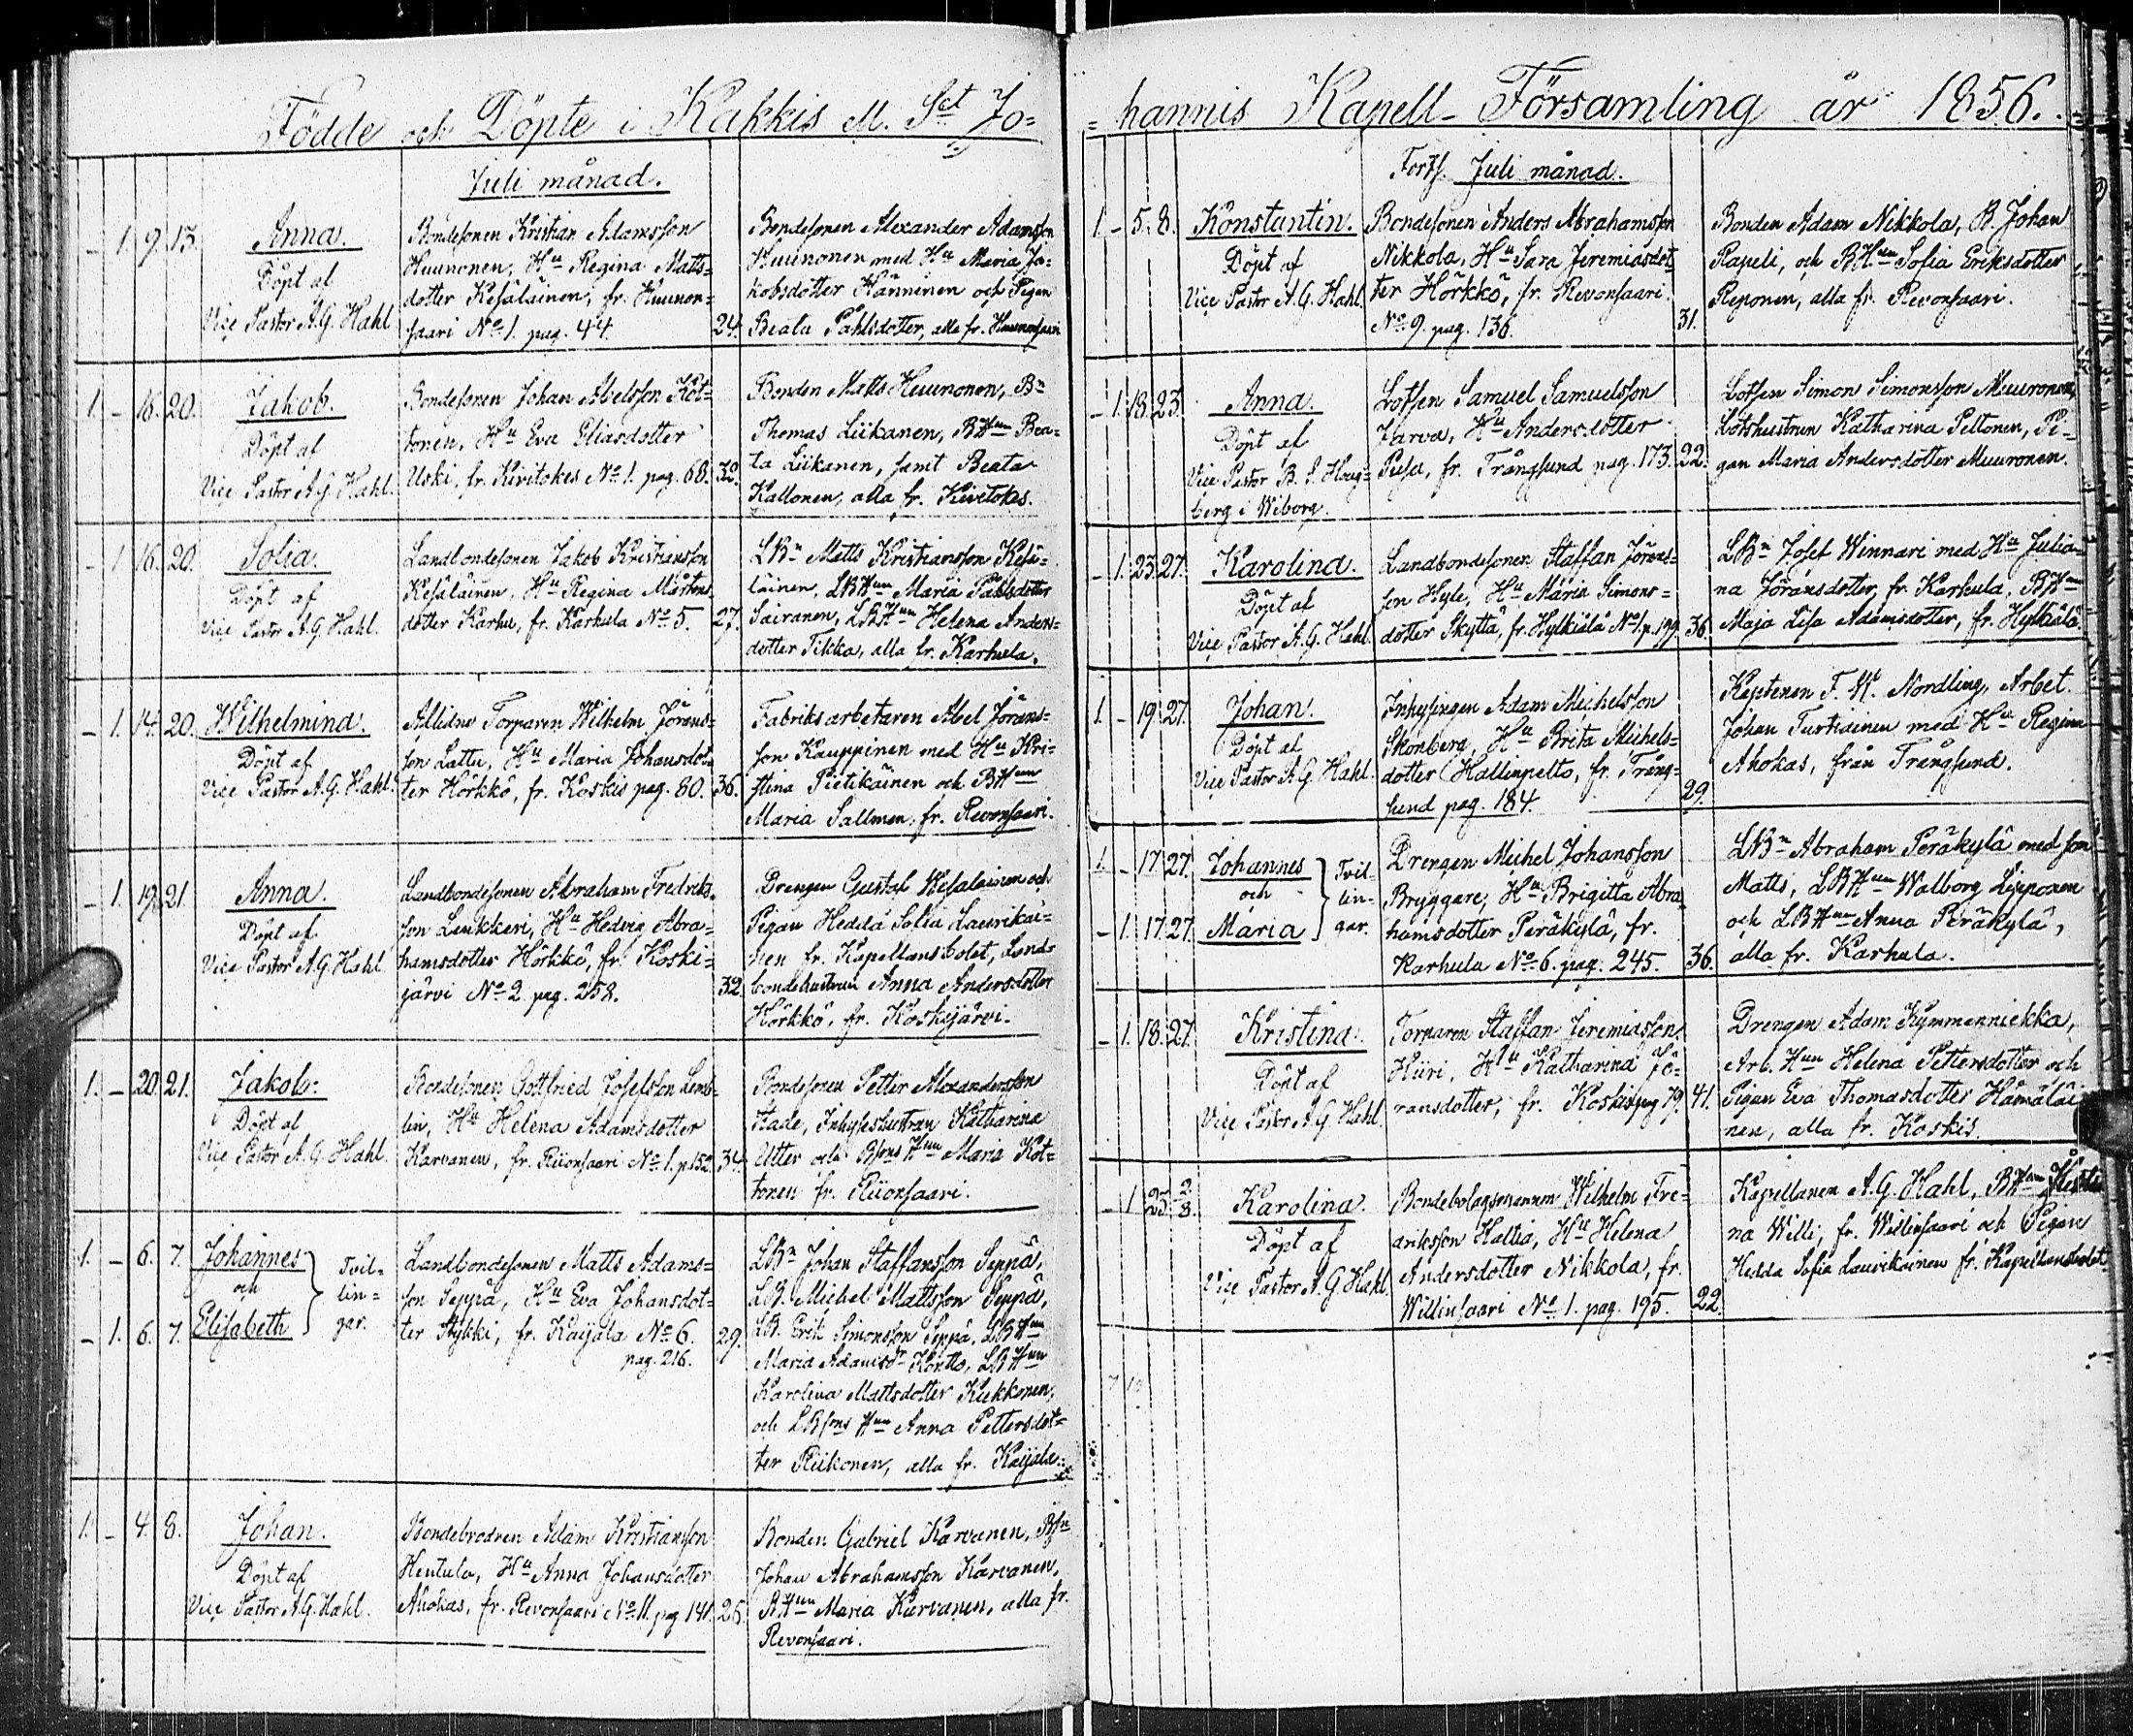 Födde och Döpte i Kakkis el. Sct Jo=
Juli månad.
- 1. 9. 13. Anna.
Döpt af
Vice Pastor A. G. Hahl
Bondesonen Kristian Adamsson
Huunonen, Hu Regina Matts=
dotter Kesäläinen, fr. Huunon=
saari No 1. pag. 44. 24.
Bondesonen Alexander Adamsson
Huunonen med Hu Maria Ja=
kobsdotter Hänninen och Pigan
Beata Påhlsdotter, alla fr. Huunonsaari
1. - 16. 20. Jakob.
Döpt af
Vice Pastor A. G. Hahl.
Bondesonen Johan Abelsson Kot=
tonen, Hu Eva Eliasdotter
Uski, fr. Kiwitokes No 1. pag. 68. 32.
Bonden Matts Huunonen, Bn
Thomas Liikanen, BHun Bea=
ta Liikanen, samt Beata
Kallonen, alla fr. Kiwitokes.
- 1 16. 20. Sofia.
Döpt af
Vice Pastor A. G. Hahl.
Landbondesonen Jakob Kristiansson
Kesäläinen, Hu Regina Mårtens
dotter Karhu, fr. Karhula No 5. 27.
LBn Matts Kristiansson Kesä=
läinen, LBHun Maria Påhlsdotter
Sairanen, LBHun Helena Anders=
dotter Tikka, alla fr. Karhula.
- 1. 14. 20. Wilhelmina.
Döpt af
Vice Pastor A. G. Hahl.
Aflidne Torparen Wilhelm Jörans=
son Lattu, Hu Maria Johansdot=
ter Hörkkö, fr. Koskis pag. 80. 36.
Fabriksarbetaren Abel Jörans=
son Kauppinen med Hu Kri=
stina Pietikäinen och BHun
Maria Sallmen, fr. Revonsaari.
- 1. 19. 21. Anna.
Döpt af
Vice Pastor A. G. Hahl
Landbondesonen Abraham Fredriks
son Liukkeri, Hu Hedvig Abra=
hamsdotter Hörkkö, fr. Koski=
järvi No 2. pag. 258. 32.
Drengen Gustaf Wesalainen och
Pigan Hedda Sofia Laurikai=
nen fr. Kapellans bolet, Land=
bondehustrun Anna Andersdotter
Hörkkö, fr. Koskijärvi.
1. - 20. 21. Jakob.
Döpt af
Vice Pastor A. G. Hahl.
Bondesonen Gottfried Josefsson Lemb=
lin, Hu Helena Adamsdotter
Karvanen, fr. Riionsaari No 1. p. 152. 34.
Bondesonen Petter Alexandersson
Stade, Inhyseshustrun Katharina
Utter och BsonsHun Maria Kot=
tonen fr. Riionsaari.
1. - 6. 7. Johannes
och
- 1. 6. 7. Elisabeth
Tvil=
lin=
gar.
Landbondesonen Matts Adams=
son Seppä, Hu Eva Johansdot=
ter Stykki, fr. Kaijala No 6. 29.
pag. 216.
LBn Johan Staffansson Seppä,
LB. Michel Mattsson Seppä,
LB. Erik Simonsson Seppä, LBHun
Maria Adamsdr Kontto, LBHun
Karolina Mattsdotter Kukkonen,
och LBsons Hun Anna Pettersdot=
ter Riikonen, alla fr. Kaijala.
1. - 4. 8. Johan.
Döpt af
Vice Pastor A. G. Hahl.
Bondebrodren Adam Kristiansson
Hentula, Hu Anna Johansdotter
Ahokas, fr. Revonsaari No 11. pag 141. 26.
Bonden Gabriel Karvanen, Bsn
Johan Abrahamsson Karvanen,
BHun Maria Karvanen, alla fr.
Revonsaari.
= hannis Kapell-Församling år 1856.
Forts. Juli månad.
1. - 5. 8. Konstantin.
Döpt af
Vice Pastor A. G. Hahl.
Bondesonen Anders Abrahamsson
Nikkola, Hu Sara Jeremiasdot=
ter Hörkkö, fr. Revonsaari.
No 9. pag. 136. 31.
Bonden Adam Nikkola, B. Johan
Papeli, och BHun Sofia Eriksdotter
Reponen, alla fr. Revonsaari.
- 1. 18. 23. Anna.
Döpt af
Vice Pastor B. S. Houg=
berg i Wiborg.
Lotsen Samuel Samuelsson
Jarva, Hu Andersdotter
Pusa, fr. Trångsund pag. 173. 22.
Lotsen Simon Simonsson Muuronen,
Lotshustrun Katharina Peltonen, Pi=
gan Maria Andersdotter Muuronen.
- 1. 23. 27. Karolina.
Döpt af
Vice Pastor A. G. Hahl
Landbondesonen Staffan Jörans=
son Hyle, Hu Maria Simons=
dotter Skyttä, fr. Hylkiälä No 1. p. 199. 36.
LBn Josef Winnari med Hu Julia=
na Jöransdotter, fr. Karhula, BHun
Maja Lisa Adamsdotter, fr. Hylkiälä
1. - 19. 27. Johan.
Döpt af
Vice Pastor A. G. Hahl.
Inhysingen Adam Michelsson
Skonberg, Hu Brita Michels=
dotter Hallinpelto, fr. Trång=
sund pag. 184. 29.
Kaptenen F. W. Nordling, Arbet.
Johan Turtiainen med Hu Regina
Ahokas, från Trångsund.
1. - 17. 27. Johannes
och
- 1. 17. 27. Maria
Tvil=
lin=
gar.
Drengen Michel Johansson
Bryggare, Hu Brigitta Abra
hamsdotter Peräkylä, fr.
Karhula No 6. pag. 245. 36.
LBn Abraham Peräkylä med son
Matts, LBHun Walborg Lipponen
och LBHun Anna Peräkylä,
alla fr. Karhula.
- 1. 18. 27. Kristina.
Döpt af
Vice Pastor A. G. Hahl.
Torparen Staffan Jeremiasson
Hiiri, Hu Katharina Jö=
ransdotter, fr. Koskis pag 79. 41.
Drengen Adam Kymmenniekka,
Arb. Hun Helena Pettersdotter och
Pigan Eva Thomasdotter Hämäläi
nen, alla fr. Koskis.
- 1 23. 2/8. Karolina.
Döpt af
Vice Pastor A. G. Hahl.
Bondebolagsmannen Wilhelm Fre=
driksson Hallia, Hu Helena
Andersdotter Nikkola, fr.
Willinsaari No 1. pag. 195. 22.
Kapellanen A. G. Hahl, BHun Kristi
na Willi, fr. Willinsaari och Pigan
Hedda Sofia Laurikainen fr. Kapellansbolet.